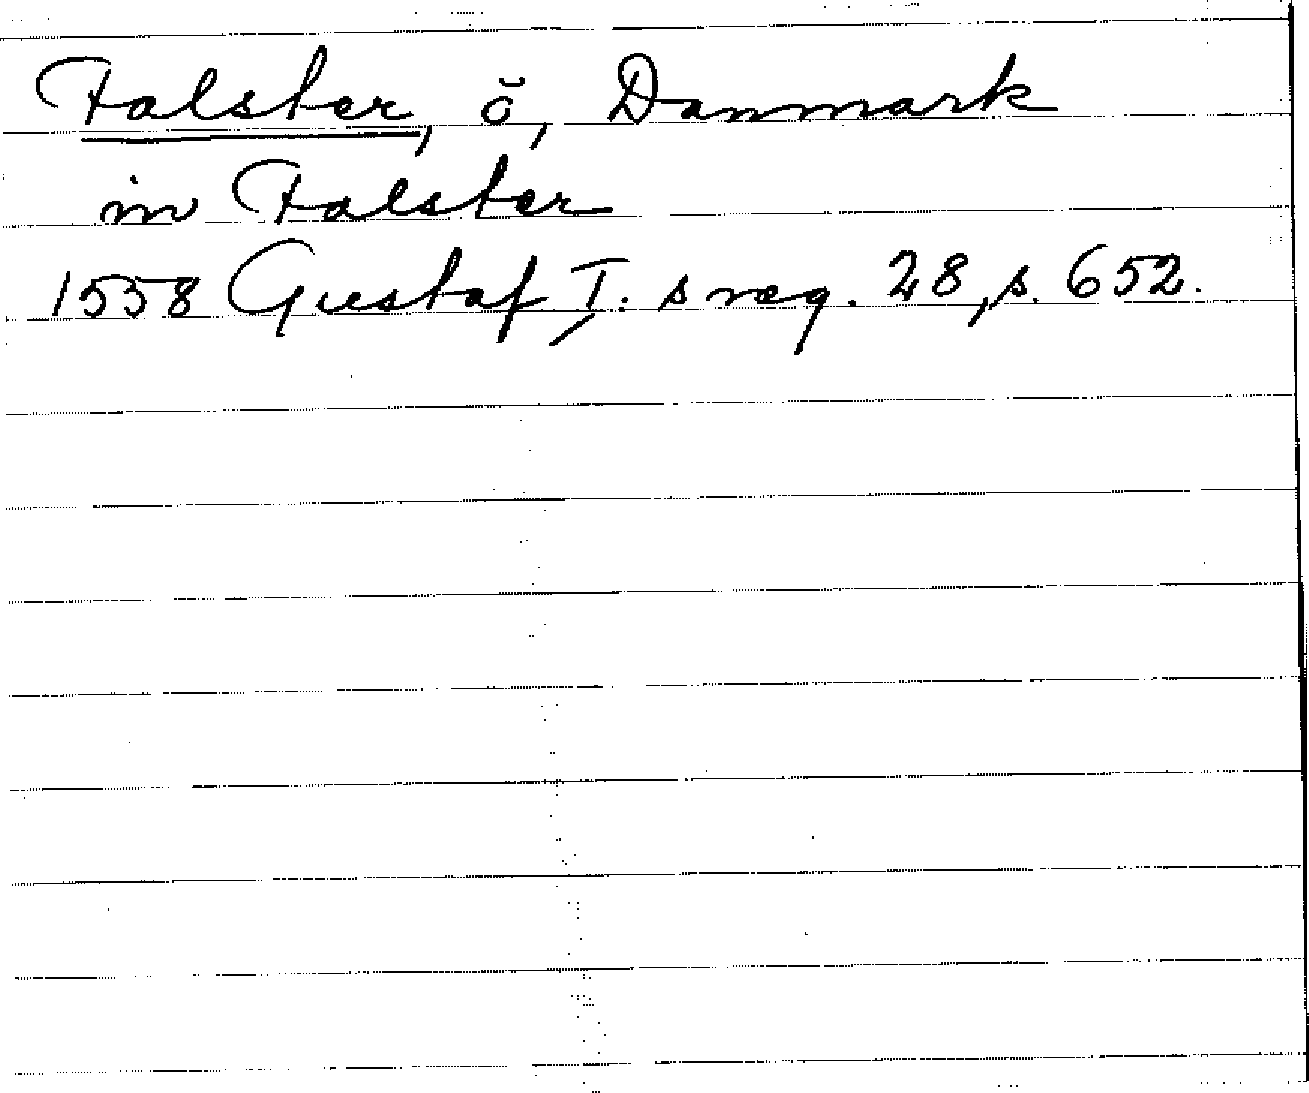 Falster, ö, Danmark
in Falster
1558 Gustaf I:s reg. 28, s. 652.